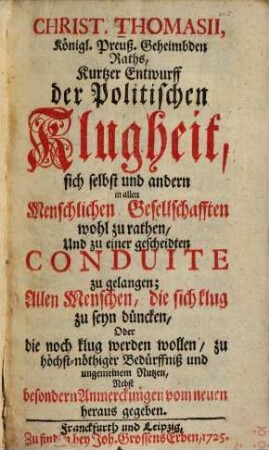 CHRIST. THOMASII,
Königl. Preuß. Geheimbden
Raths,
Kurtzer Entwurff
der Politischen
Klugheit,
sich selbst und andern
in allen
Menschlichen Gesellschafften
wohl zu rathen,
Und zu einer gescheidten
CONDUITE
zu gelangen;
Allen Menschen, die sich klug
zu seyn düncken,
Oder
die noch klug werden wollen, zu
höchst-nöthiger Bedürffniß und
ungemeinem Nutzen,
Nebst
besondern Anmerckungen vom neuen
heraus gegeben.
Franckfurth und Leipzig,
Zu finden bey Joh. Grossens Erben, 1725.